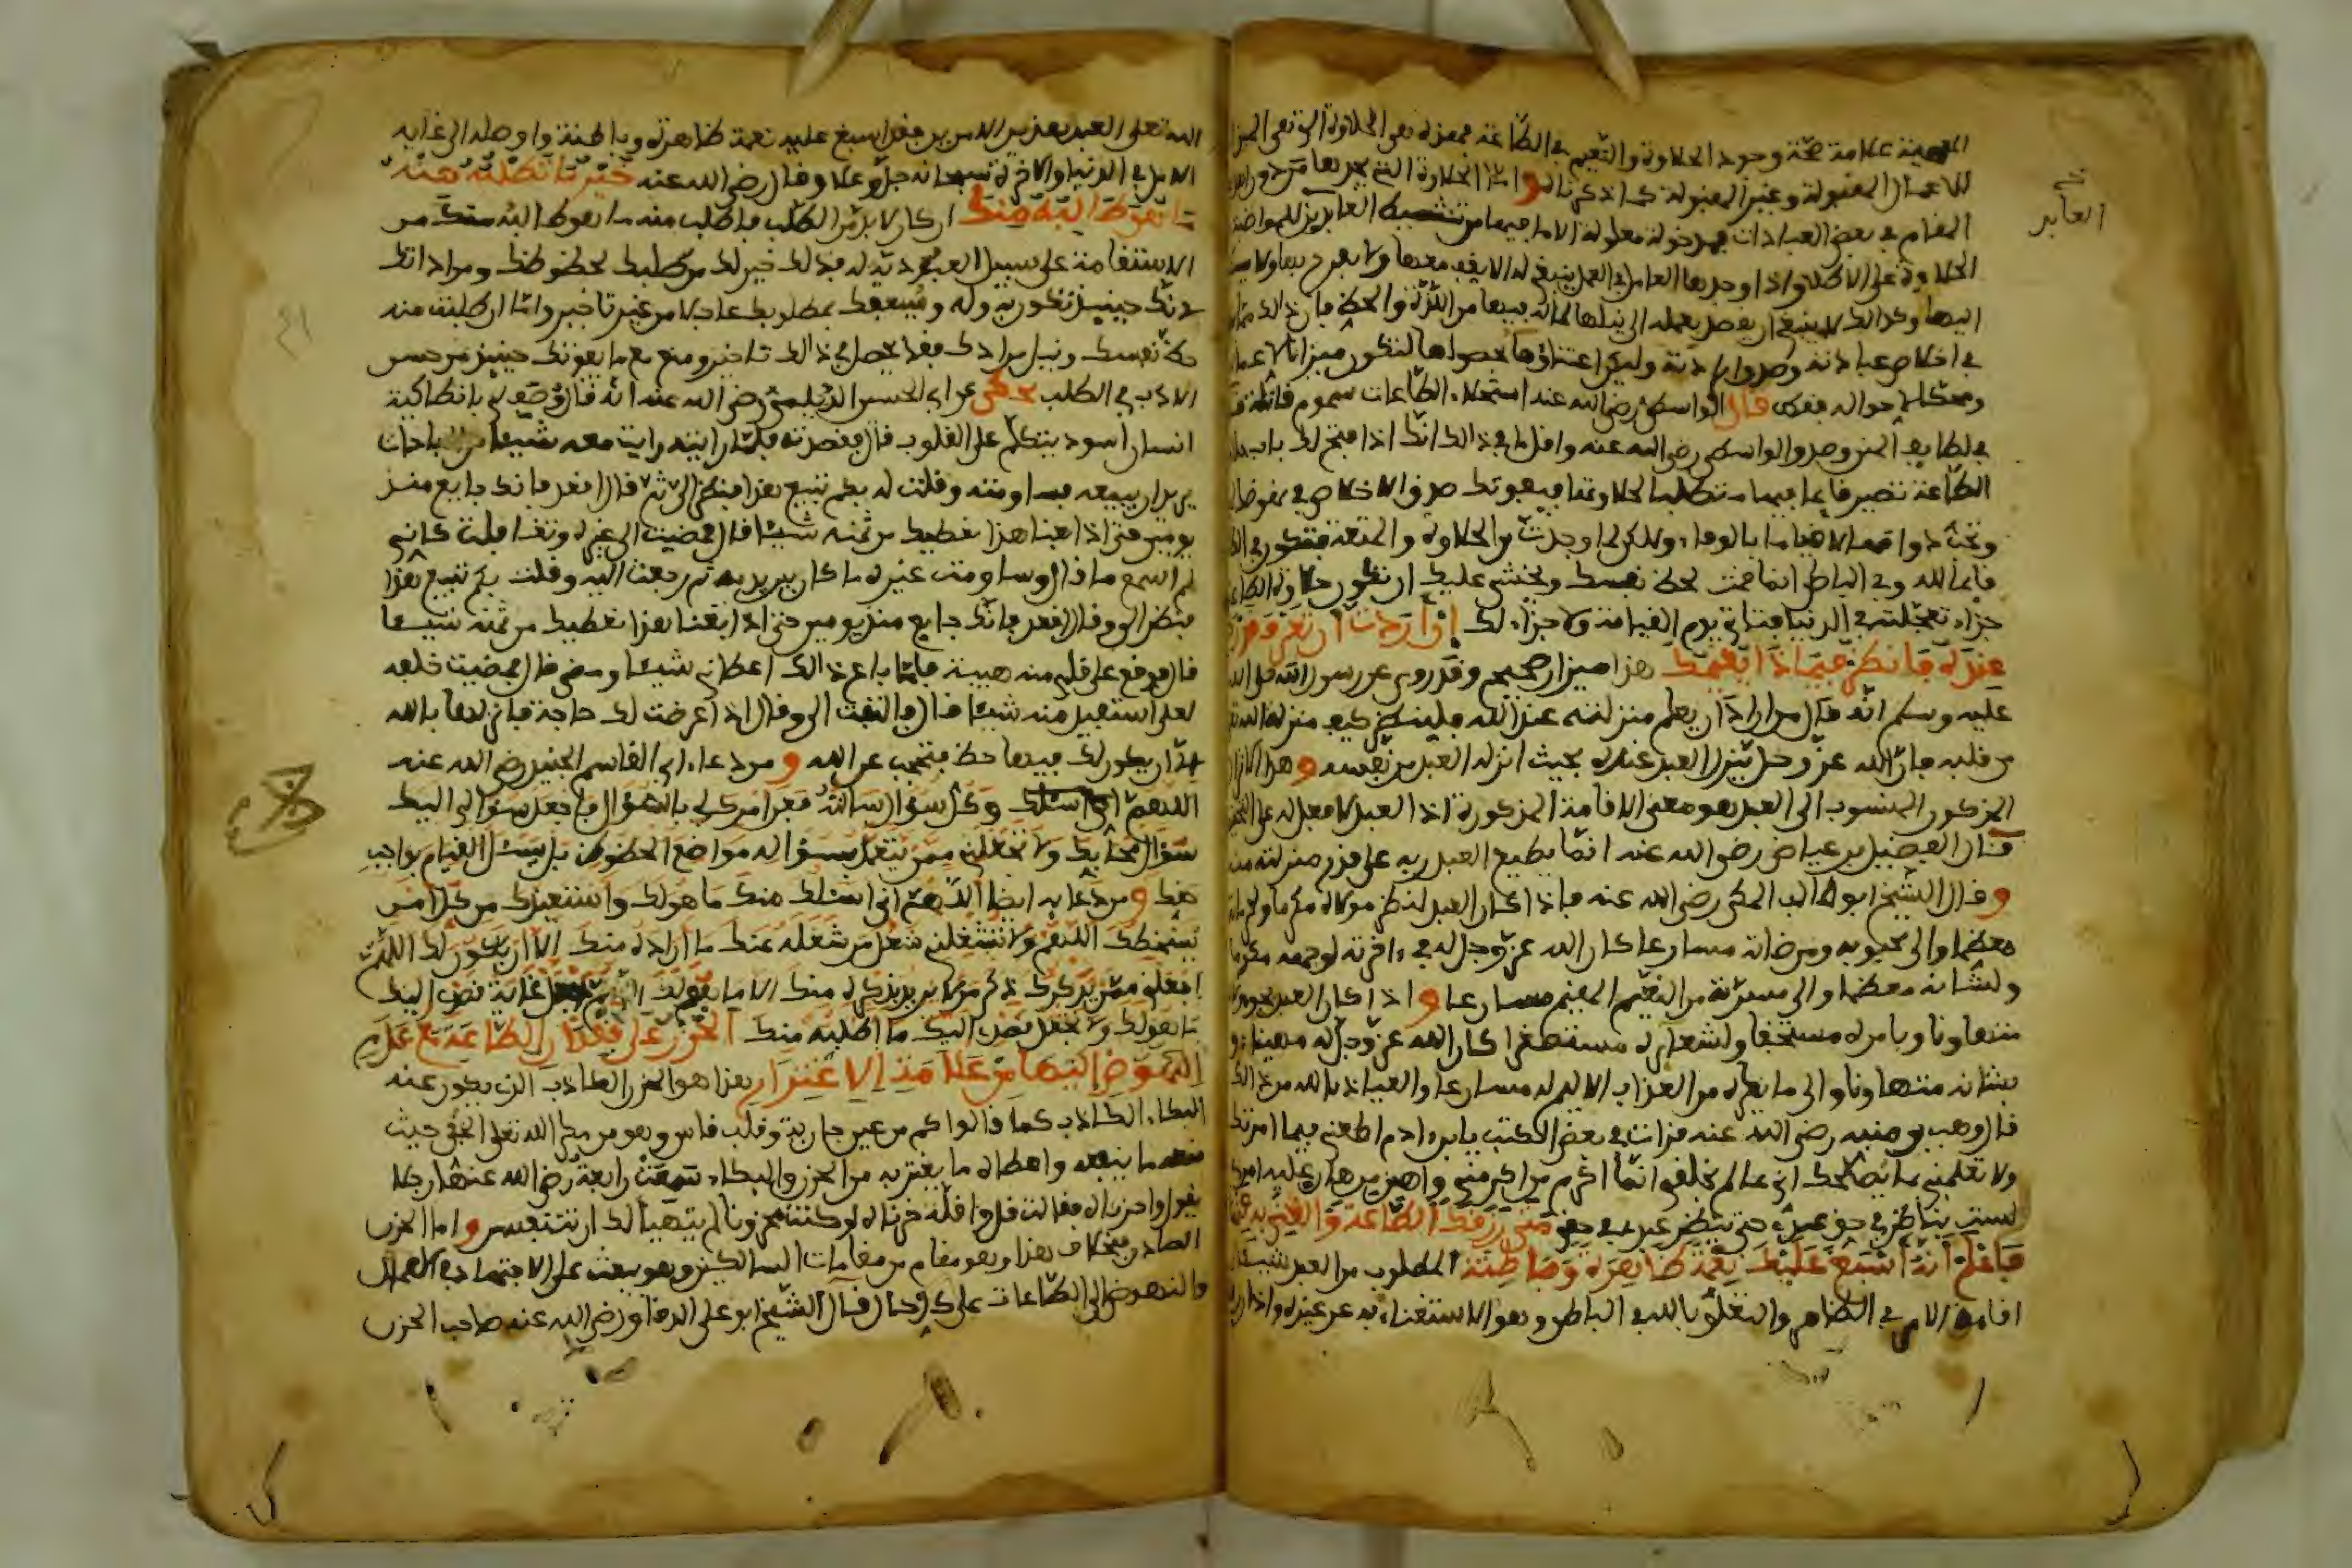 علامة صحة وجود الحلاوة والتنعيم في الطاعة
الاعمال المقبولة وغير المقبولة كما ذكرنا و اما الحلاوة التي يجدها
المقام في بعض العبادات مدخولة معلولة
الحلاوة على الاطلاق اذا وجدها العامل في العمل ينبغي له الا يقف معها ولا يفرح بها ولا
اليها وكذالك لا ينبغي ان يقصد بعمله الى نيلها لما له فيها من اللذة والحظ فان ذالك مما
في اخلاص عبادته وصدق ارادته وليكن اعتناؤه بحصولها لتكون ميزانا لاعماله
ومحكا لاحواله فقط قال الواسطي رضي الله عنه استحلاء الطاعات سموم قاتلة
وصدق الواسطي رضي الله عنه واقل ما في ذالك انك اذا فتح لك باب
الطاعة تصير قائما فيها متطلبا لحلاوتها فيفوتك صدق الاخلاص في
وتحب دوامها لا قياما بالوفاء ولاكن لما وجدت من الحلاوة والمتعة فتكون في
قائما لله وفي الباطن انما قمت لحظ نفسك ويخشى عليك ان تكون حلاوة
جزاء تعجلته في الدنيا فتاتي يوم القيامة ولا جزاء لك اذا اردت ان تعرف قدرك
عنده فانظر فيماذا يقيمك هذا ميزان صحيح وقد روي عن رسول الله صلى الله
عليه وسلم انه قال من اراد ان يعلم منزلته عند الله فلينظر كيف منزلة الله
من قلبه فان الله عز وجل ينزل العبد عنده بحيث انزله العبد من نفسه و
المذكور المنسوب الى العبد هو معنى الاقامة المذكورة اذ العبد لا فعل له على
قال الفضيل بن عياض رضي الله عنه انما يطيع العبد ربه على قدر منزلته منه
و قال الشيخ ابو طالب المكي رضي الله عنه فاذا كان العبد
معظما والى محبوبه ومرضاته مسارعا كان الله عز وجل له في اخرته لوجهه مكرما
ولشانه معظما والى مسرته من النعيم المقيم مسارعا و اذا كان العبد
متهاونا وبامره مستخفا ولشعائره مستصغرا كان الله عز وجل له مهينا
بشانه متهاونا والى ما يكره من العذاب الاليم له مسارعا والعياذ بالله من ذالك
قال وهب بن منبه رضي الله عنه قرات في بعض الكتب يا ابن ادم اطعني فيما امرتك
ولا تعلمني بما يصلحك اني عالم بخلقي انما اكرم من اكرمني واهين من هان عليه امري
لست بناظر في حق عبدي حتى ينظر عبدي في حقي متى رزقك الطاعة والغنى به عنها
فاعلم انه اسبغ عليك نعمه ظاهرة وباطنة المطلوب من العبد
اقامة الامر في الظاهر والتعلق بالله في الباطن وهو الاستغناء به عن غيره واذا
العابد
الله تعلى العبد هذين الامرين فقد اسبغ عليه نعمه ظاهرة وباطنة واوصله الى غاية
الامل في الدنيا والاخرة سبحانه جل وعلا وقال رضي الله عنه خير ما تطلبه منه
ما يفوظ الله منك ان كان لا بد من الطلب فاطلب منه ما
الاستقامة على سبيل العبودية له فذلك خير لك من طلبك لحظوظك ومراداتك
لانك حينئذ تكون به وله ويسعفك بمطلوبك عاجلا من غير تاخير واما ان طلبت منه
حظ نفسك ونيل مرادك فقد يحصل في ذالك تاخير ومنع مع ما يفوتك حينئذ من حسن
الادب في الطلب حكي عن ابي الحسن الديلمي رضي الله عنه انه قال وصف لي بانطاكية
انسان اسود يتكلم على القلوب قال فقصدته فلما رايته رايت معه شيئا من المباحات
يريد ان يبيعه فساومته وقلت له بكم تبيع هذا فنظر الي ثم قال اقعد فانك جايع منذ
يومين حتى اذا بعنا هذا نعطيك من ثمنه شيئا قال فمضيت الى غيره وتغافلت كاني
لم اسمع ما قال وساومت غيره ما كان بين يديه ثم رجعت اليه وقلت بكم تبيع هذا
فنظر الي وقال اقعد فانك جايع منذ يومين حتى اذا بعنا هذا نعطيك من ثمنه شيئا
قال فوقع على قلبي منه هيبة فلما باع ذالك اعطاني شيئا ومضى قال فمضيت خلفه
لعلي استفيد منه شيئا قال فالتفت الي وقال اذا عرضت لك حاجة فانزلها بالله
الا ان يكون لك فيها حظ فتحجب عن الله و من دعاء ابي القاسم الجنيد رضي الله عنه
اللهم اني اسئلك وكل سؤال سالته فعن امرك لي بالسؤال فاجعل سؤالي اليك
سؤال محابك ولا تجعلني ممن يتعمد بسؤاله مواضع الحظوظ بل يسئل القيام بواجب
حقك و من دعائه ايضا اللهم اني اسئلك منك ما هو لك واستعيذك من كل امر
يسخطك اللهم ولا تشغلني شغل من شغله عنك ما اراده منك الا ان يكون لك اللهم
اجعلني ممن يذكرك ذكر من لا يريد بذكره منك الا ما هو لك اللهم اجعل غاية قصدي اليك
ما هو لك ولا تجعل قصدي اليك ما اطلبه منك الحزن على فقدان الطاعة مع عدم
النهوض اليها من علامة الاغترار هذا هو الحزن الكاذب الذي يكون عنه
البكاء الكاذب كما قالوا كم من عين جارية وقلب قاس وهو من مكر الله تعلى الخفي حيث
منعه ما ينفعه واعطاه ما يغتر به من الحزن والبكاء سمعت رابعة رضي الله عنها رجلا
يقول واحزناه فقالت قل واقلة حزناه لو كنت محزونا لم يتهيأ لك ان تتنفس و اما الحزن
الصادق فبخلاف هذا وهو مقام من مقامات السالكين وهو يبعث على الاجتهاد في الاعمال
والنهوض الى الطاعات على كل حال قال الشيخ ابو علي الدقاق رضي الله عنه صاحب الحزن